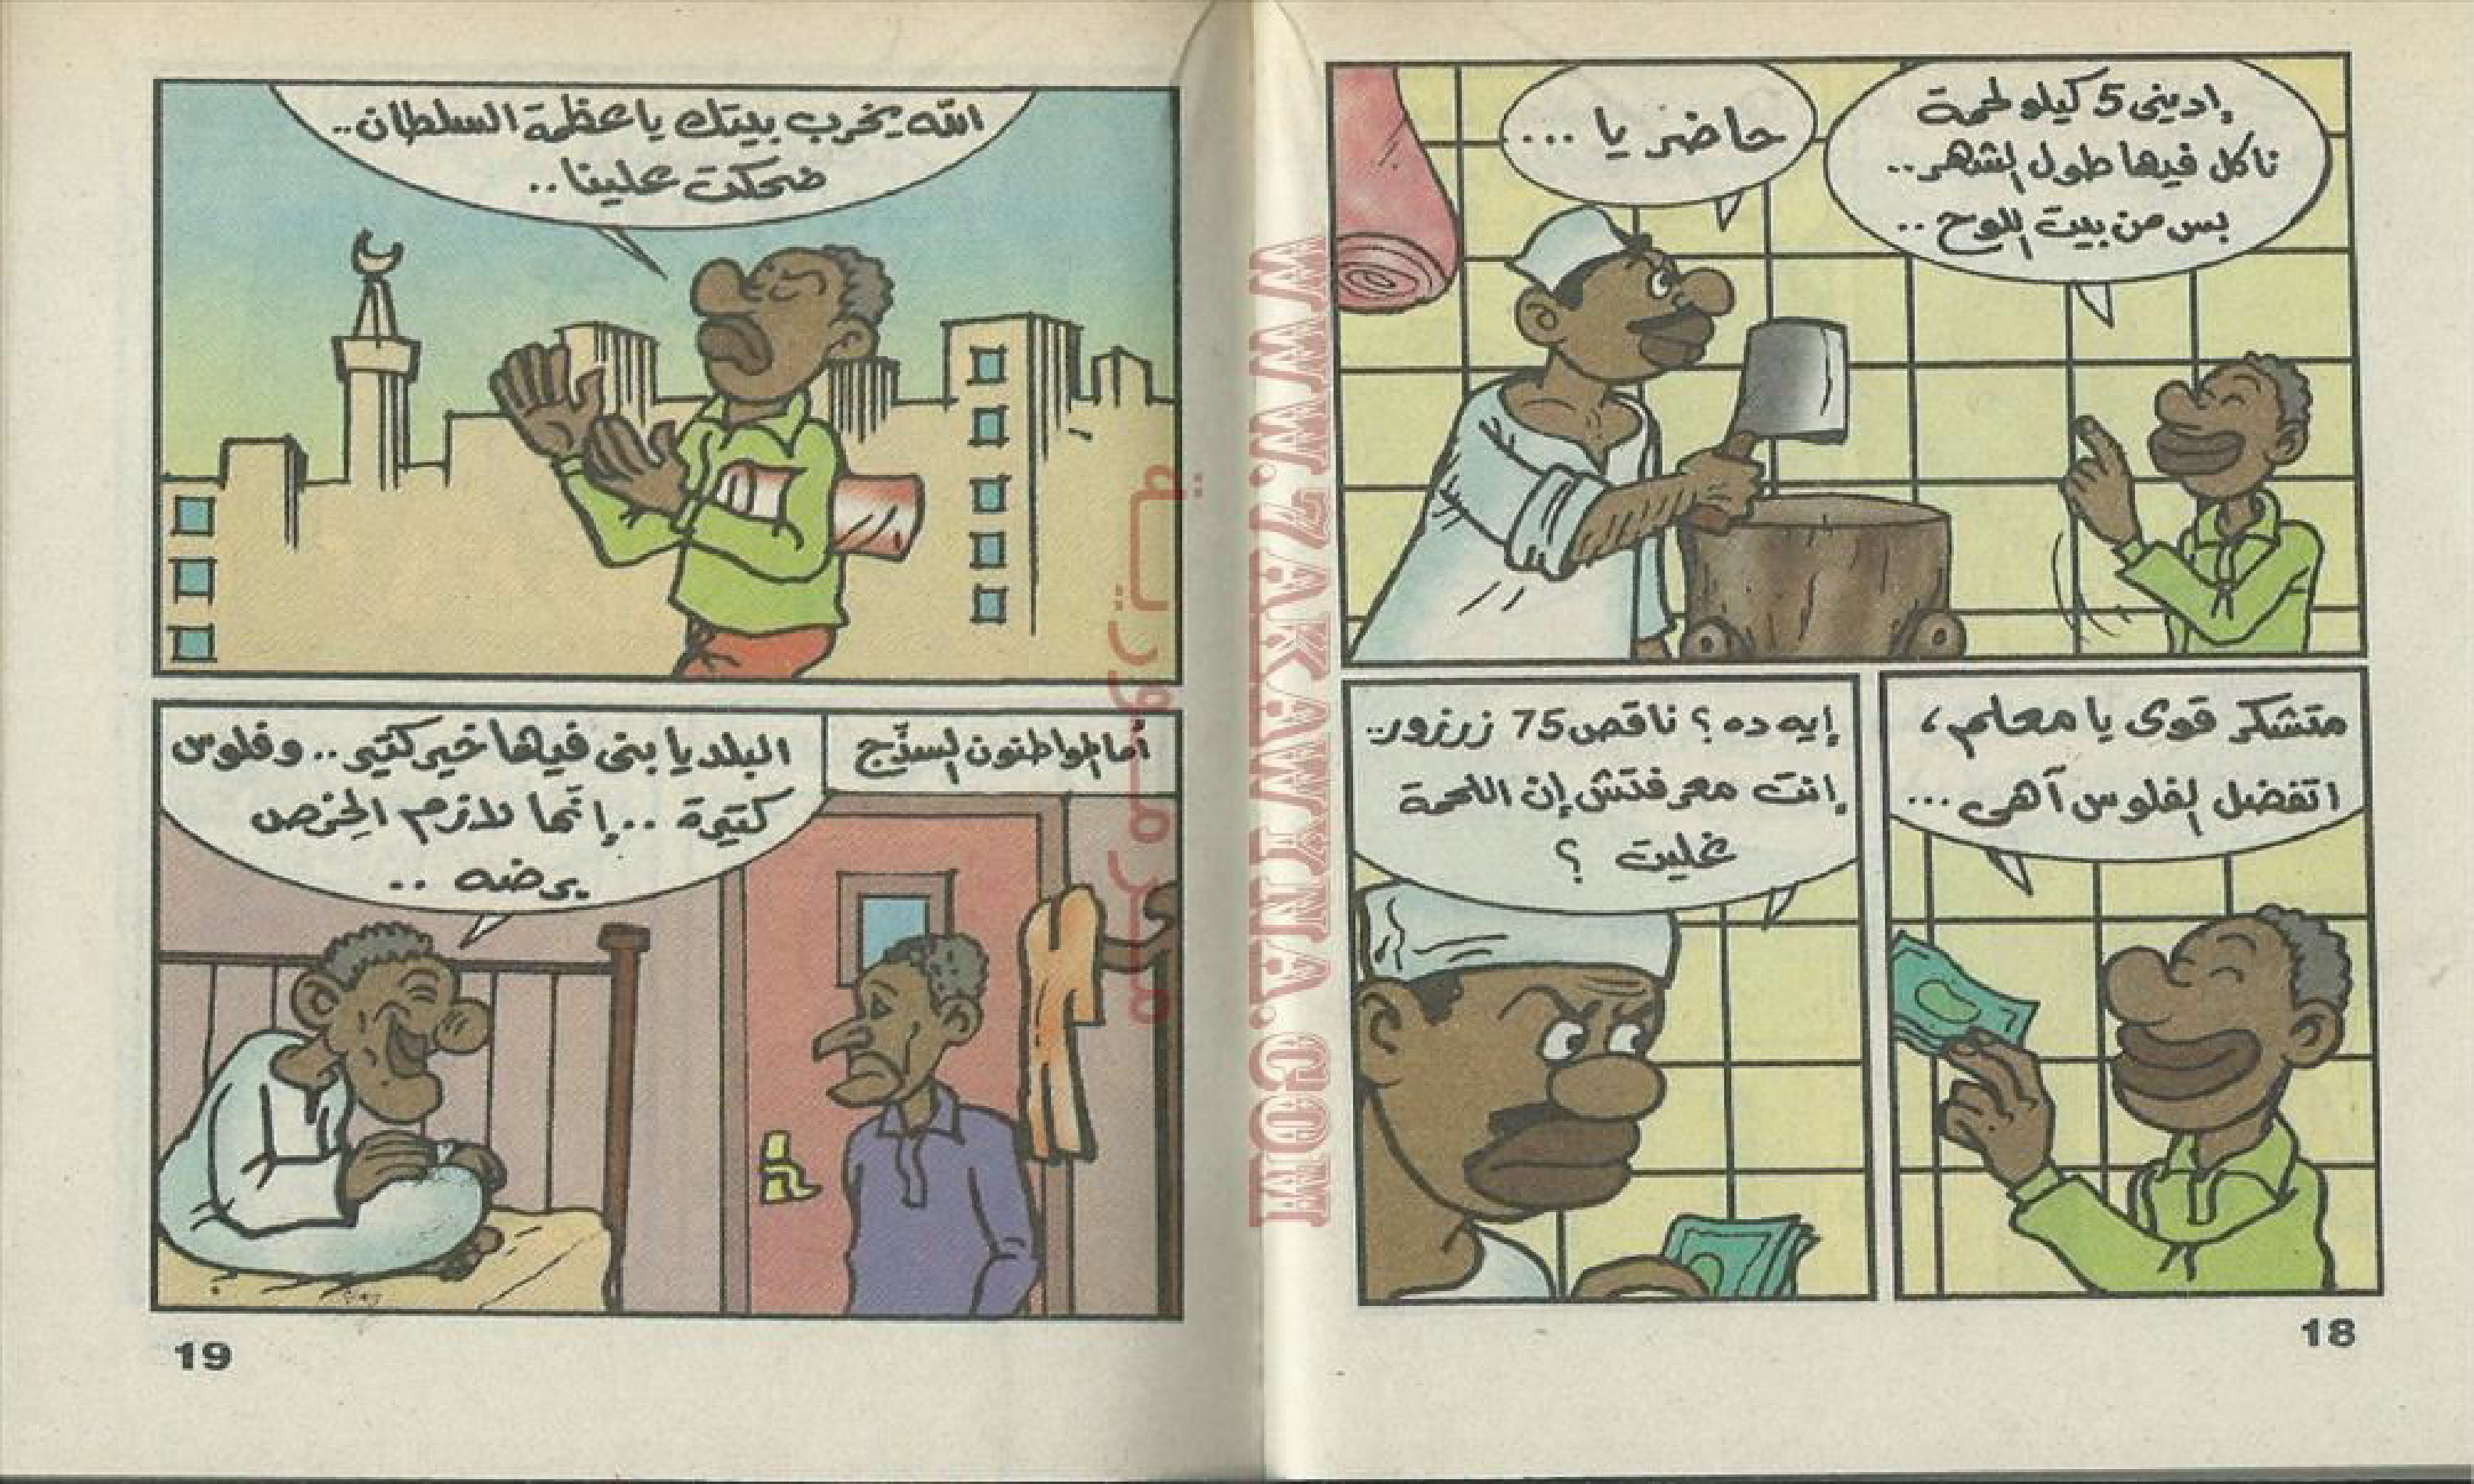 إدينى 5 كيلو لحمة
ناكل فيها طول الشهر..
بس من بيت اللوح ..
حاضر يا ...
متشكر قوى يا معلم،
اتفضل الفلوس آهى ...
إيه ده ؟ ناقص 75 زرزور..
إنت معرفتش إن اللحمة
غليت ؟
18
الله يخرب بيتك يا عظمة السلطان..
ضحكت علينا..
أما المواطنون السذّج
البلد يا بنى فيها خير كتير.. وفلوس
كتيرة ... إنّما لازم الحِرص
برضه ..
19
WWW.ZAKAWATNA.COM